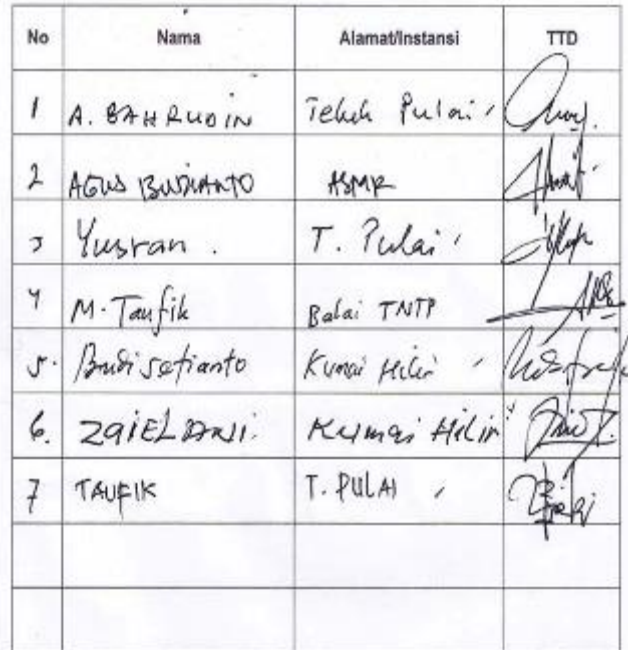 No Nama Alamat/Instansi TTD
1 A. BAHRUDIN Teluk Pulai
2 AGUS BUDIANTO ASMR
3 Yusran. T. Pulai
4 M. Taufik Balai TNTP
5. Budi setianto Kumai Hilir
6. Kumai Hilir
7 TAUFIK T. PULAI